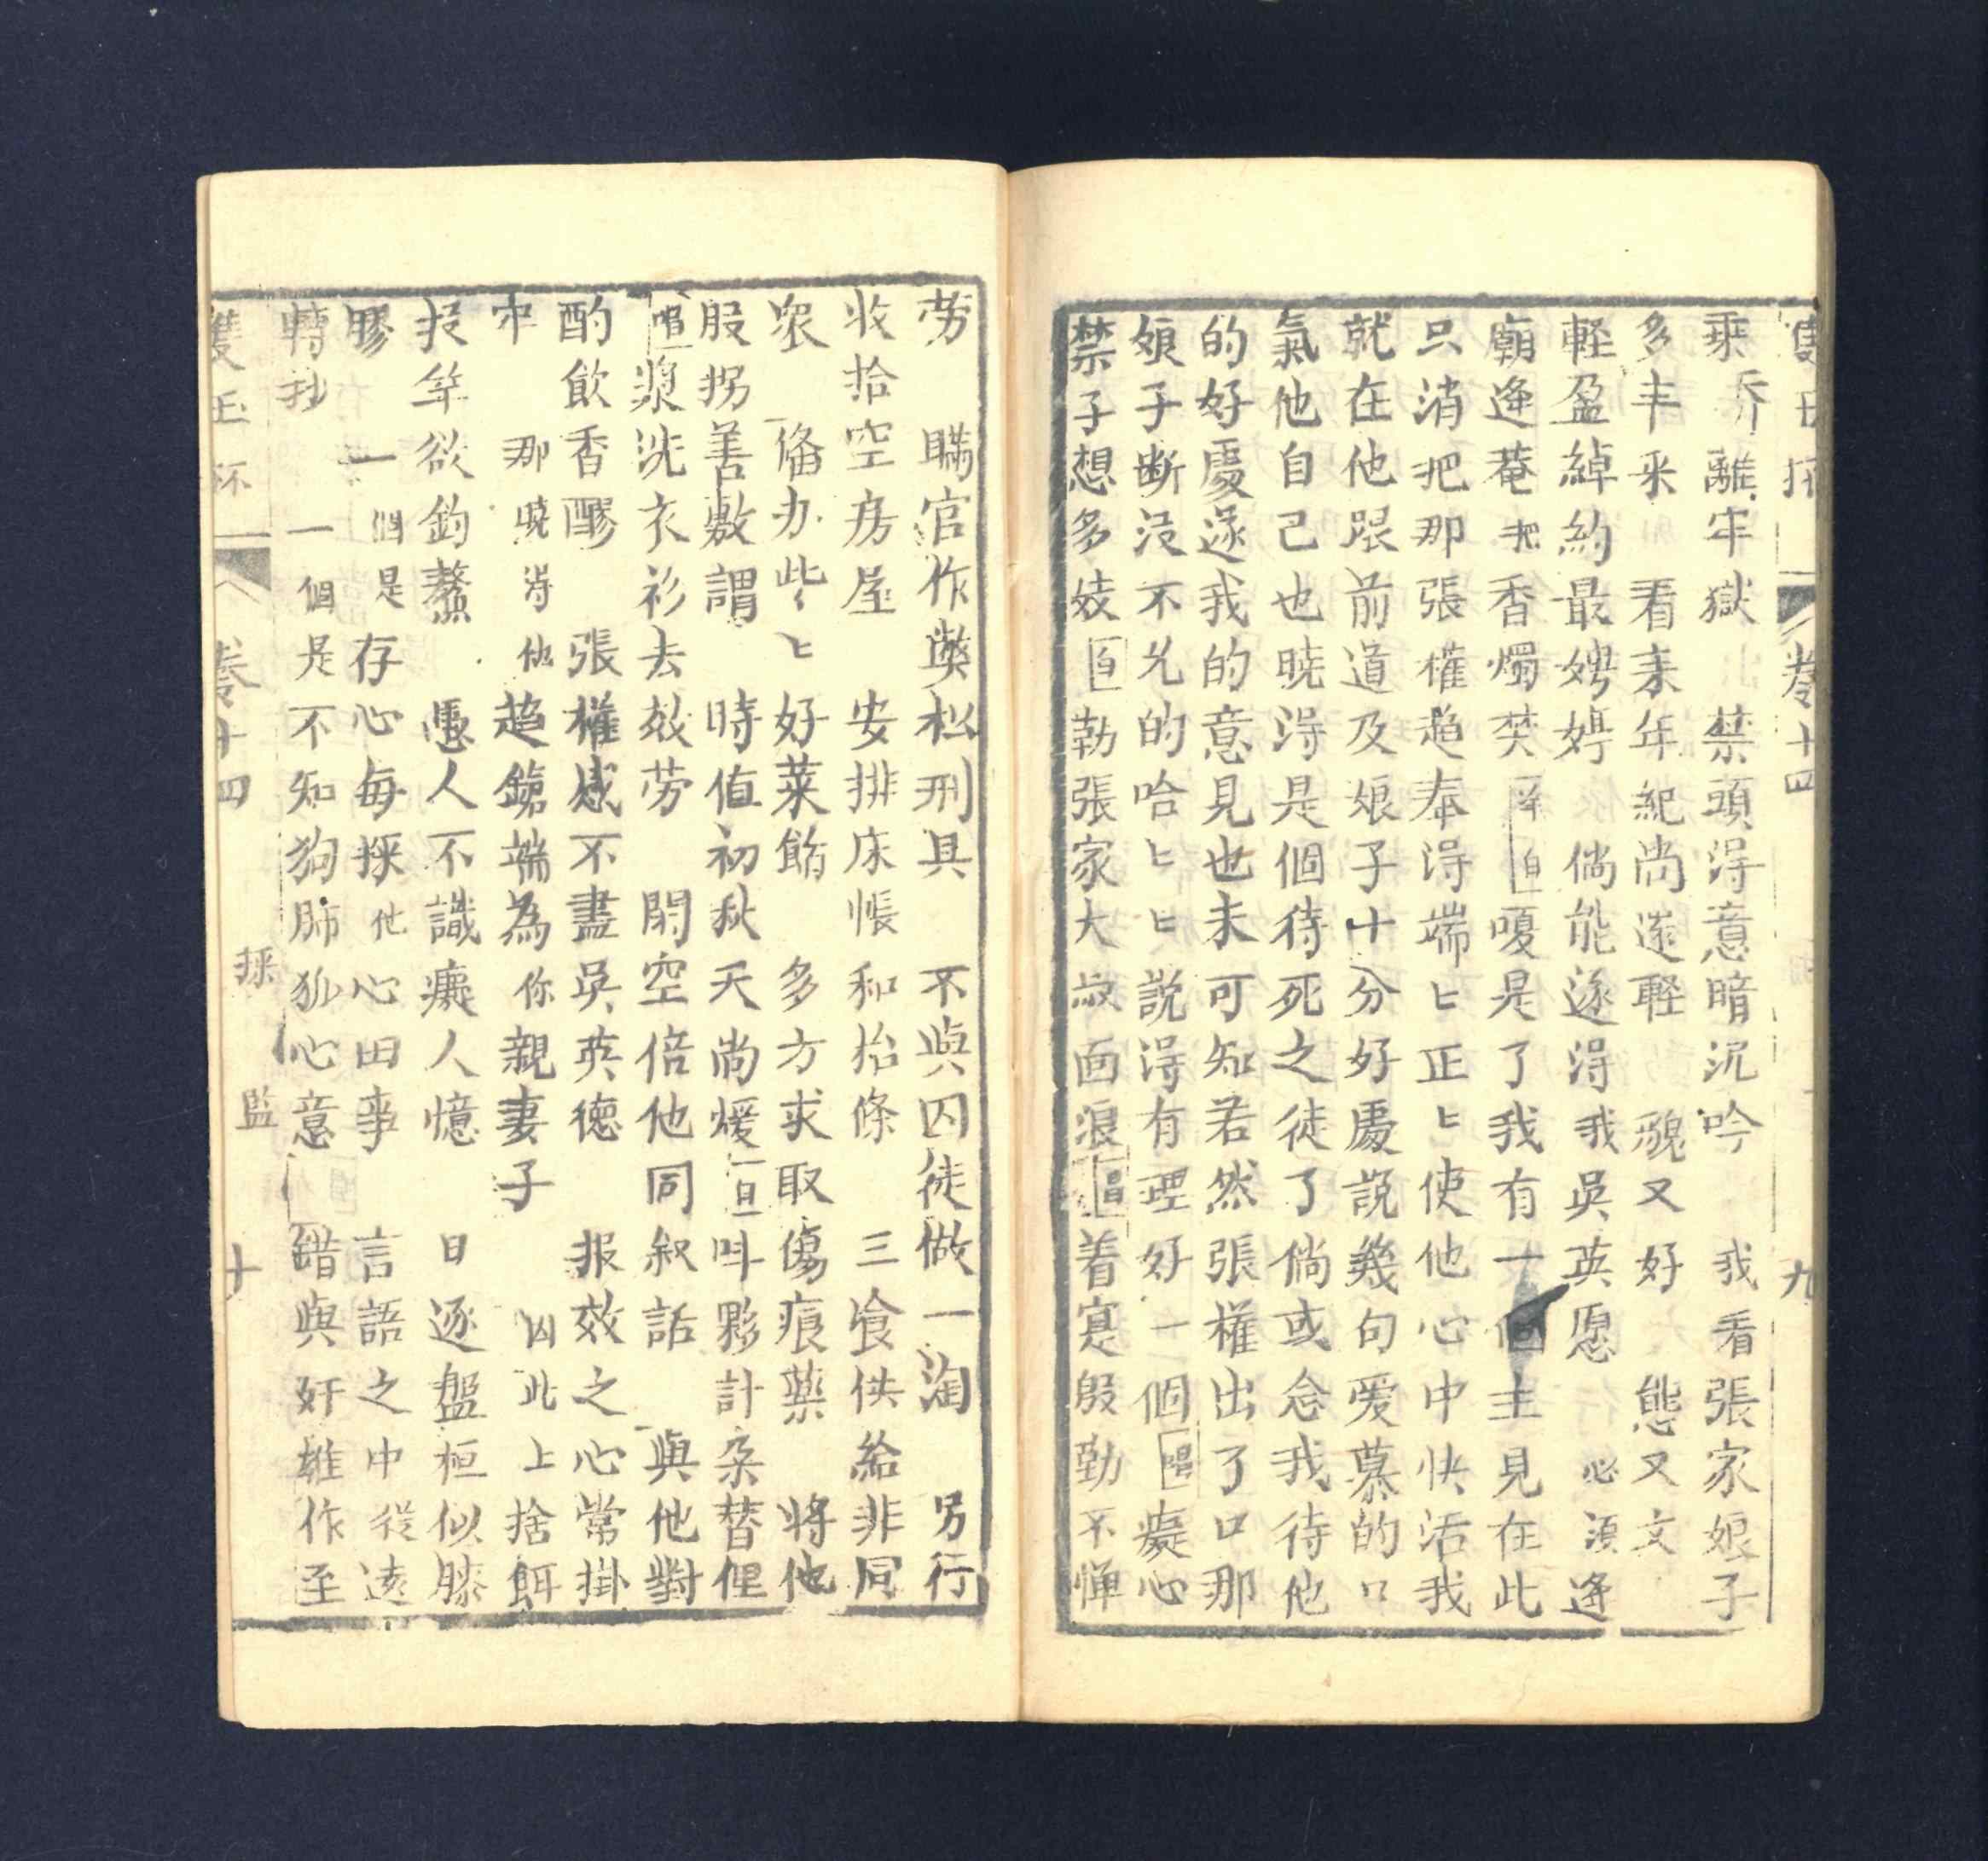 卷十四 九
乘 喬離牢獄 禁頭得意暗沉吟 我看張家娘子
多丰采 看来年紀尚遥輕 貌又好 態又文
輕盈綽約最娉婷 倘能遂得我吳英愿 必須逢
廟逢菴把香燭焚 白 嗄是了我有一個主見在此
只消把那張權趨奉得端匕正匕使他心中快活我
就在他跟前道及娘子十分好處説幾句爱慕的口
氣他自己也曉淂是個待死之徒了倘或念我待他
的好處遂我的意見也未可知若然張權出了口那
娘子断没不允的哈匕匕説淂有理好一個 唱 癡心
禁子想多妓 白 勒張家大叔面浪 唱 着寔殷勤不憚
劳 瞞官作獘松刑具 不與囚徒做一淘 另行
收拾空房屋 安排床帳和抬條 三飡供給非同
衆 偹办些匕好菜餚 多方求取傷痕藥 将他
股拐善敷謂 時值初秋天尚煖 白 呌夥計朶替俚
唱 漿洗衣衫去效劳 閑空倍他同叙話 與他對
酌飲香醪 張權感不盡吳英德 报效之心常掛
牢 那曉淂他趋鎗端為你親妻子 因此上捨餌
投竿欲釣鰲 愚人不識癡人憶 日逐盤桓似膝
膠 一個是存心每採他心田事 言語之中從遠
轉抄 一個是不知狗肺狐心意 錯與奸雄作至
雙玉杯 卷十四 採監 十